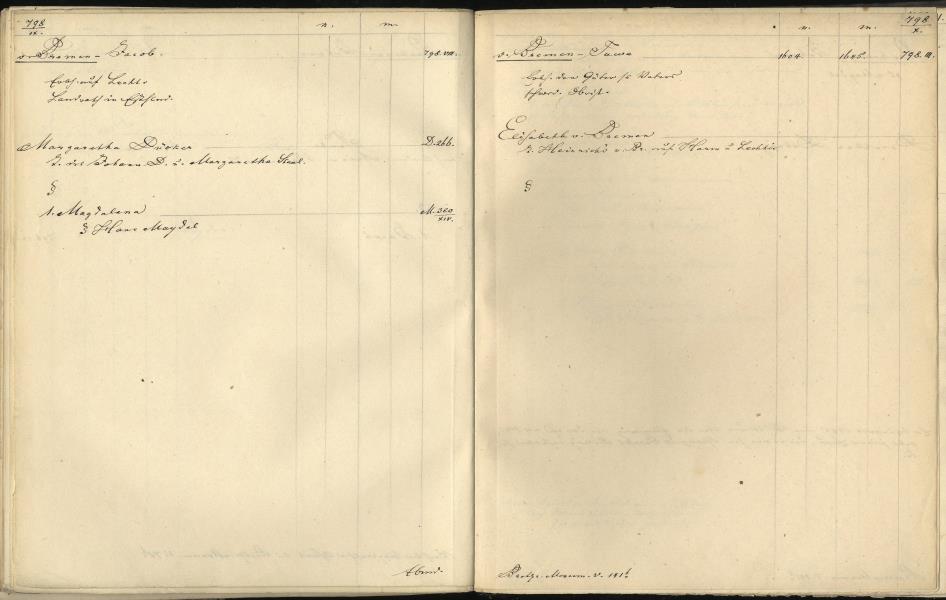 798
IX.
n. m.
v. Bremen - Jacob. 798.VIII.
Erbh. auf Lechts
Landrath in Ehstland.
Margaretha Dücker D.266.
T. des Johann D. u. Margaretha Stael.
§
1. Magdalena M.320
XIV.
Hans Maydel
Ebend.
n. m.
798
X.
v. Bremen - Tuwe 1604 1606. 798.III.
Erbh. der Güter s. Vaters
schwed. Obrist.
Elisabeth v. Bremen
T. Heinrichs v. Br. auf u. Lechts
§